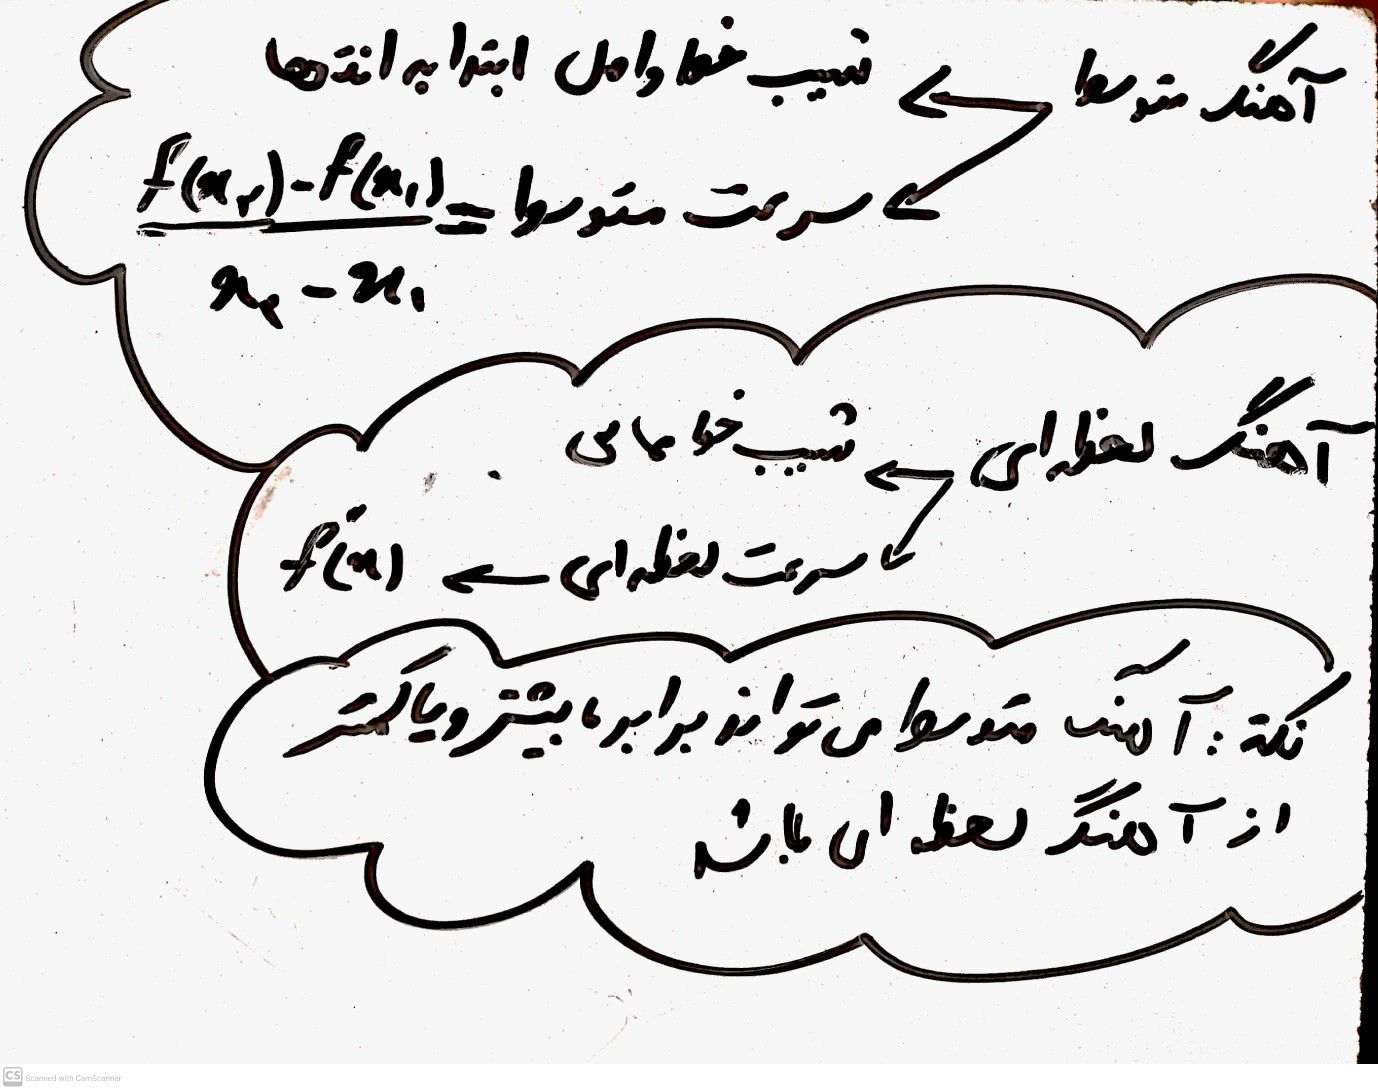 آهنگ متوسط ← شیب خط واصل ابتدا به انتها
← سرعت متوسط = f(x۲)-f(x۱)
x۲ - x۱
آهنگ لحظه ای ← شیب خط مماس
سرعت لحظه ای ← f'(x)
نکته : آهنگ متوسط می تواند برابر، بیشتر و یا کمتر
از آهنگ لحظه ای باشد
CS Scanned with CamScanner